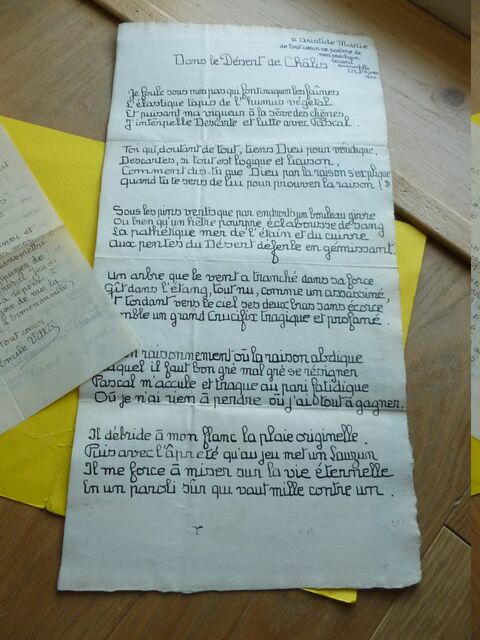 a Aristide Marie
de tout cœur ce poème de
mon prochain
recueil
Dans le Désert de Châlis
Je foule sous mes pas qui font craquer les faînes
L'élastique tapis de l'humus végétal
Et puisant ma vigueur à la sève des chênes
J'interpelle Descarte et lutte avec Pascal.
Toi qui, doutant de tout, tiens Dieu pour véridique,
Descartes, si tout est logique et liaison,
Comment dis-tu que Dieu par la raison s'explique
Quand tu te sers de lui pour prouver la raison ! »
Sous les pins verts que par endroits un bouleau givre
Ou bien qu'un hêtre pourpre éclabousse de sang
La pathétique mer de l'étain et du cuivre
Aux pentes du Désert déferle en gémissant.
Un arbre que le vent a tranché dans sa force
Gît dans l'étang, tout nu, comme un assassiné,
Et tordant vers le ciel ses deux bras sans écorce
mble un grand Crucifix tragique et profané.
n raisonnement où la raison abdique
aquel il faut bon gré mal gré se résigner
Pascal m'accule et traque au pari fatidique
Où je n'ai rien à perdre où j'ai tout à gagner.
Il débride à mon flanc la plaie originelle.
Puis avec l'âpreté qu'au jeu met un Lauzun
Il me force à miser sur la vie éternelle
En un paroli sûr qui vaut mille contre un.
oit et
de me la
Tout cœur